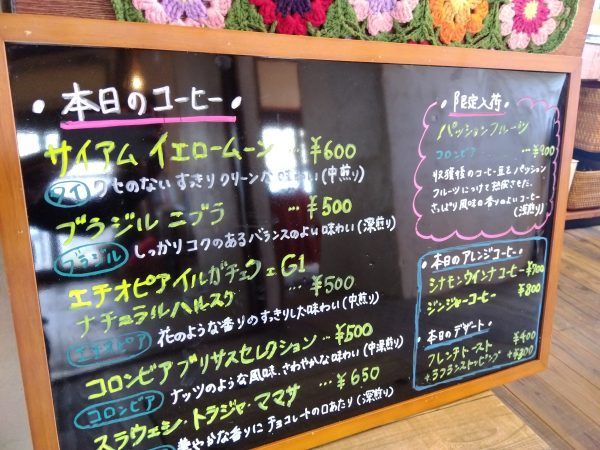 ・本日のコーヒー・
サイアム イエロームーン … ¥600
タイ クセのない すっきり クリーンな味わい(中煎り)
ブラジル ニブラ … ¥500
ブラジル しっかりコクのあるバランスのよい味わい(深煎り)
エチオピア イルガチェフェG1
ナチュラルハルスケ … ¥500
エチオピア 花のような香りのすっきりした味わい(中煎り)
コロンビア ブリサスセレクション … ¥500
コロンビア ナッツのような風味、さわやかな味わい(中深煎り)
スラウェシ・トラジャ・ママサ … ¥650
華やかな香りに チョコレートの口あたり(深煎り)
・限定入荷・
パッションフルーツ
コロンビア … ¥900
収穫後のコーヒー豆とパッション
フルーツにつけて熟成させた、
さっぱり風味の香りのよいコーヒー
(浅煎り)
・本日のアレンジコーヒー・
シナモンウインナコーヒー ¥700
ジンジャーコーヒー ¥800
・本日のデザート・
フレンチトースト … ¥400
+ラフランストッピング +¥200